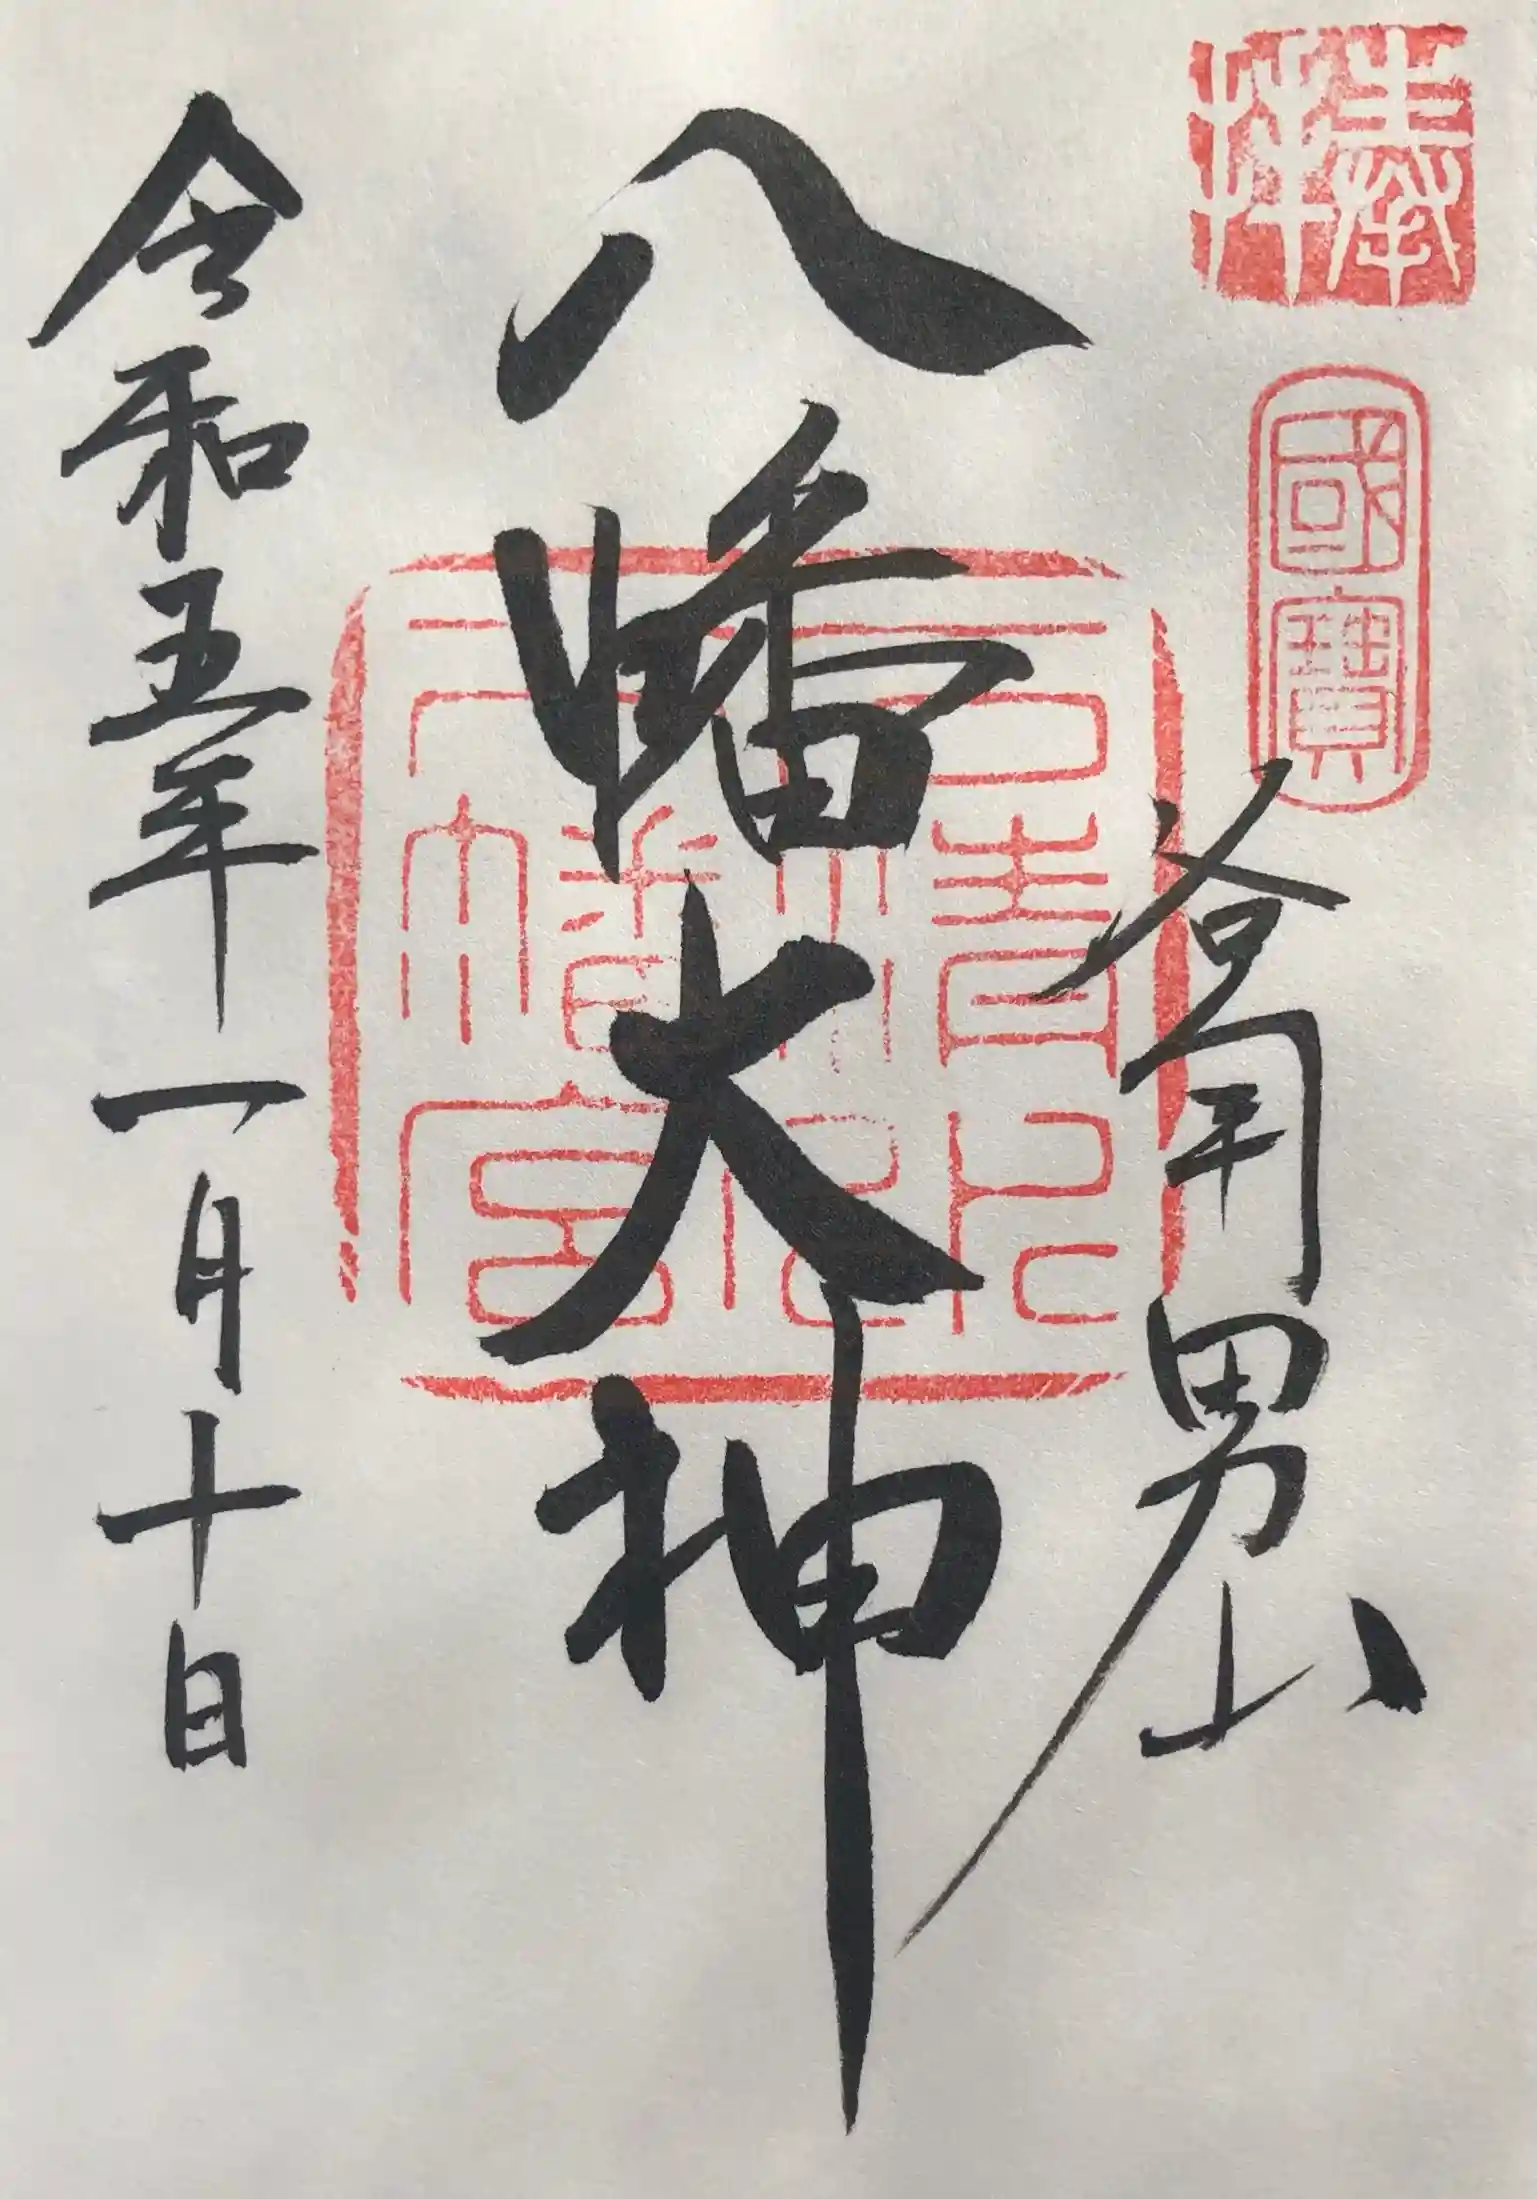 奉拝
國寶
洛南男山
八幡大神
石清水
八幡宮
令和五年一月十日